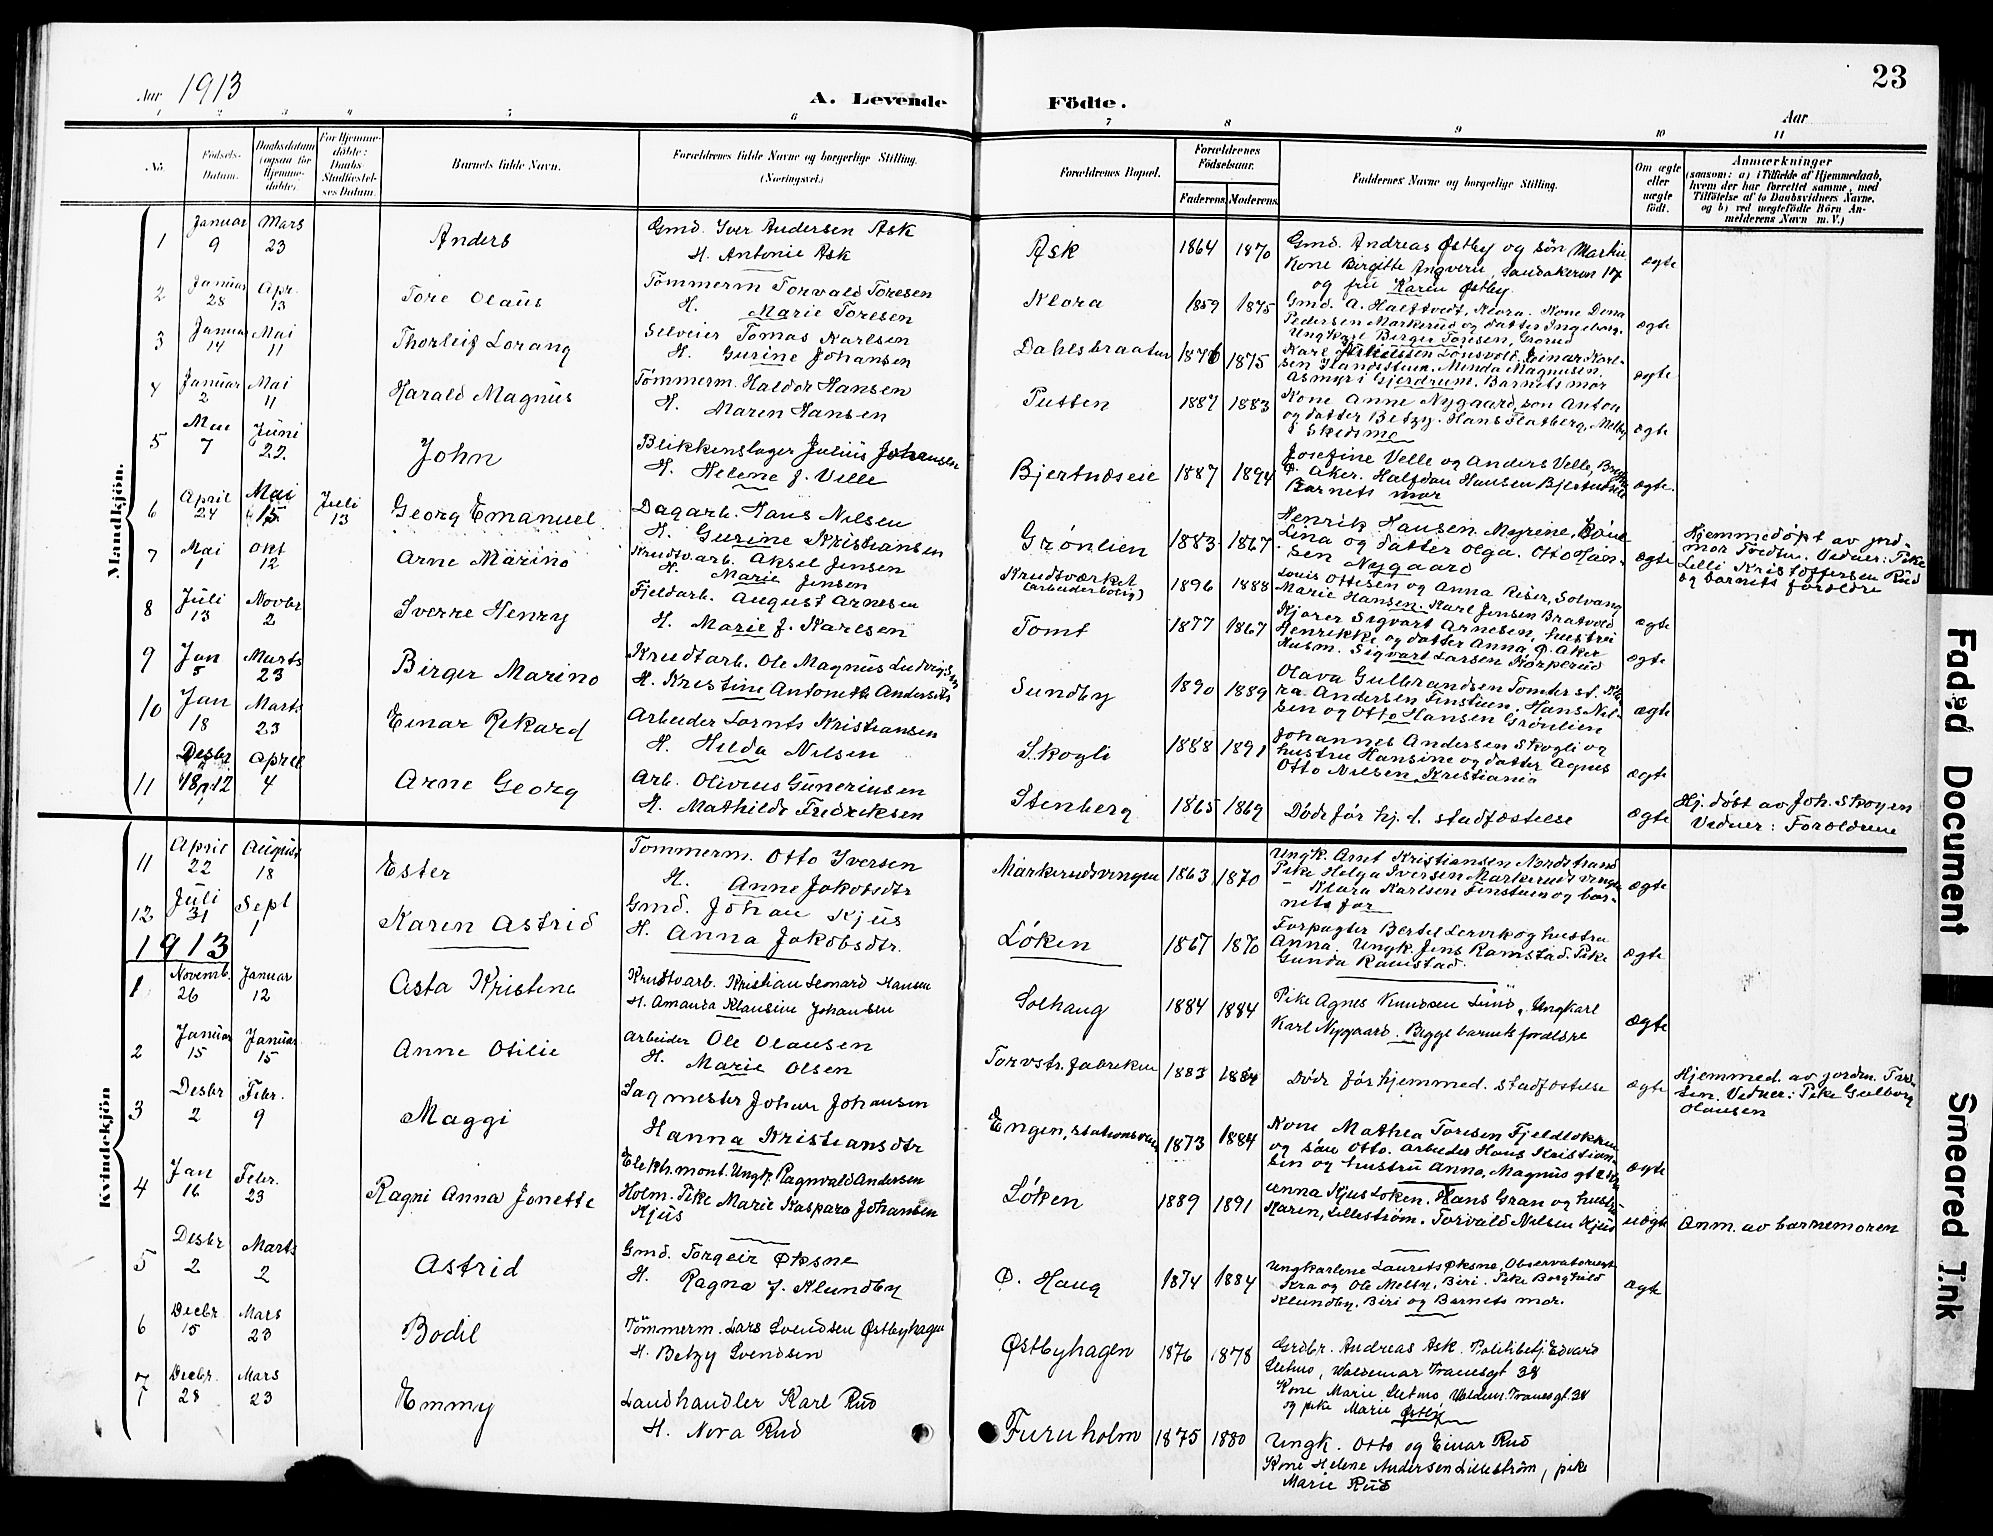 23
Aar 1913
A. Levende Födte.
Aar
1 2 3 4 5 6 7 8 9 10 11
No. Födsels-Datum. Daabsdatum (ogsaa for Hjemmedöbte). For Hjemmedöbte: Daabs-Stadfæstelses Datum. Barnets fulde Navn. Forældrenes fulde Navne og borgerlige Stilling. (Næringsvei.) Forældrenes Bopæl. Forældrenes Födselsaar. Faderens. Moderens. Faddernes Navne og borgerlige Stilling. Om ægte eller uægte födt. Anmærkninger (saasom: a) i Tilfælde af Hjemmedaab, hvem der har forrettet samme, med Tilföielse af to Daabsvidners Navne, og b) ved uægtefödte Börn Anmelderens Navn m. V.)
Mandkjön.
1 Januar 9 Mars 23 Anders Gmd. Iver Andersen Ask
H. Antonie Ask Ask 1864 1870 Gmd. Andreas Østby og søn
Kone Birgitte
og frü Karen Østby ægte
2 Januar 28 Apr. 13 Tore Olaüs Tömmerm Torvald Toresen
H. Marie Toresen Klora 1859 1875 Gmd. A. Halftvedt, Klora. Kone
Pedersen Markerud og datter Ingeborg.
Ungkarl Birger Toresen, Grorud ægte
3 Januar 14 Mai 11 Thorleif Lorang Selveier Tomas Karlsen
H. Gurine Johansen Dahlsbraaten 1876 1875 Karl Einar Karl-
sen Minda Magnusen
Asmyr i Gjerdrum. Barnets mor ægte
4 Januar 2 Mai 11 Harald Magnüs Tømmerm. Haldor Hansen
H. Maren Hansen Putten 1887 1883 Kone Anne Nygaard, søn Anton
og datter Betzy. Hans Flatberg, Melby
i Skedsmo ægte
5 Mai 7 Jüni 22. John Blikkenslager Julius Johansen
H. Helene f. Velle Bjertnæseie 1887 1894 Josefine Velle og Anders Velle,
Ø. Aker. Halfdan Hansen Bjertnæseie
Barnets mor ægte.
6 April 24 Mai 15 Juli 13 Georg Emanuel Dagarb. Hans Nilsen
H. Gurine Kristiansen Grønlien 1883 1867 Henrik Hansen Myrene,
Lina og datter Olga. Otto Han-
sen Nygaard ægte Hjemmedøpt av jord-
mor Tredtn. Vidner: Pike
Lilli Kristoffersen Rud
og barnets foreldre
7 Mai 1 Okt 12 Arne Marino Krudtvarb. Aksel Jensen
H. Marie Jensen Krudtværket
(arbeiderbolig) 1896 1888 Louis Ottesen og Anna Riser, Solvang
Marie Hansen. Karl Jensen Bratvold ægte
8 Juli 13 Novbr 2 Sverre Henry Fjeldarb. August Arnesen
H. Marie f. Karlsen Tomt 1877 1867 Kjører Sigvart Arnesen, hustru
Henrikke og datter Anna, Ø. Aker
Husm. Sigvart Larsen Korperud ægte
9 Jan 5 Marts 23 Birger Marino Krudtarb. Ole Magnüs Ludvigsen
H. Kristine Antonette Andersen Sundby 1890 1889 Olava Gulbrandsen Tomter st. Kla
ra Andersen Finstuen. Hans Nil-
sen og Otto Hansen Grønlien ægte
10 Jan 18 Marts 23 Einar Rikard Arbeider Lornts Kristiansen
H. Hilda Nilsen Skogli 1888 1891 Johannes Andersen Skogli og
hustru Hansine og datter Agnes
Otto Nielsen, Kristiania ægte
11 Desbr. 18/12 April 4 Arne Georg Arb. Olivius Günerinsen
H. Mathilde Fredriksen Stenberg 1865 1869 Døde før hj. d. stadfæstelse ægte Hj. døbt av Joh. Skogen
Vidner: Foroldrene
Kvindekjön
11 April 22 August 18 Ester Tommerm. Otto Iversen
H. Anne Jakobsdtr Markerudvingen 1863 1870 Ungk. Arnt Kristiansen Nordstrand
Pike Helga Iversen Markerudvingen
Klara Karlsen Finstuen og bar-
nets far ægte
12 Juli 31 Sept 1 Karen Astrid Gmd. Johan Kjüs
H. Anna Jakobsdtr. Løken 1867 1870 Forpagter Bertel Lervik og hustru
Anna. Ungk. Jens Ramstad. Pike
Gunda Ramstad. ægte
1913
1 Novemb. 26 Januar 12 Asta Kristine Krudtvarb. Kristian Lenard Hansen
H. Amanda Klausine Johansen Solhaug 1884 1884 Pike Agnes Knudsen Lund, Ungkarl
Karl Nygaard. Begge barnets foraldre ægte
2 Januar 15 Januar 15 Anne Otilie Arbeider Ole Olausen
H. Marie Olsen Torvstr. fabrikken 1883 1884 Døde før hjemmed. stadfæstelse ægte Hjemmed. av jordm.
Vidner: Pike Gulborg
Olausen
3 Desbr 2 Febr. 9 Maggi Sagmester Johan Johansen
Hanna Kristiansdtr Engen, 1873 1884 Kone Mathea Toresen Fjeldlokken
og søn Otto. Arbeider Hans Kristian-
sen og hustru Anna, Magnus gt ægte
4 Jan 16 Febr. 23 Ragni Anna Jonette Elektr. mont. Ungk. Ragnvald Andersen
Holm. Pike Marie Kaspara Johansen
Kjüs Løken 1889 1891 Anna Kjus Løken. Hans Gran og hustru
Karen, Lillestrøm. Torvald Nilsen Kjus uægte Anm. av barnemoren
5 Desbr 2 Marts 2 Astrid Gmd. Torgeir Øksne
H. Ragna f. Klundby Ø. Haug 1874 1884 Ungkarlene Laurits Øksne, Observatoriegt
Kra og Ole Melby, Biri. Pike Borghild
Klundby, Biri og Barnets mor. ægte
6 Decbr 15 Mars 23 Bodil Tömmerm. Lars Svendsen Østbyhagen
H. Betzy Svendsen Østbyhagen 1876 1878 Grdbr. Andreas Ask. Politibetj. Edvard
Sletmo, Waldemar Tranesgt 38
Kone Marie Sletmo Valdem. Tranesgt. 38
og pike Marie Østby
7 Decbr. 28 Mars 23 Emmy Landhandler Karl Rud
H. Nora Rud Furuholm 1875 1880 Ungk. Otto og Einar Rud
Kone Helene Andersen Lilleström, pike
Marie Rud
Faded Document
Smeared Ink